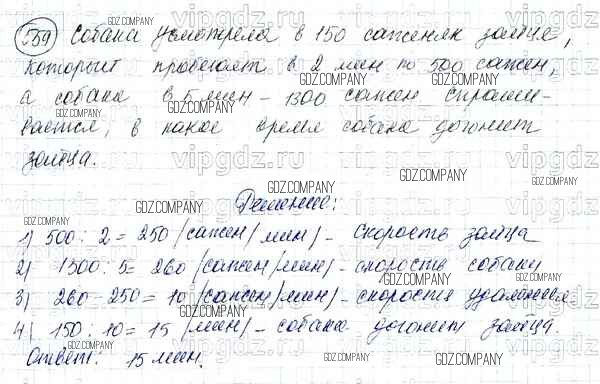 559 Собака усмотрела в 150 саженях зайца,
который пробегает в 2 мин по 500 сажен,
а собака в 5 мин – 1300 сажен. Спраши-
вается, в какое время собака догонит
зайца.
Решение:
1) 500 : 2 = 250 (сажен/мин) – скорость зайца
2) 1300 : 5 = 260 (сажен/мин) – скорость собаки
3) 260 – 250 = 10 (сажен/мин) – скорость удаления
4) 150 : 10 = 15 (мин) – собака догонит зайца.
Ответ: 15 мин.